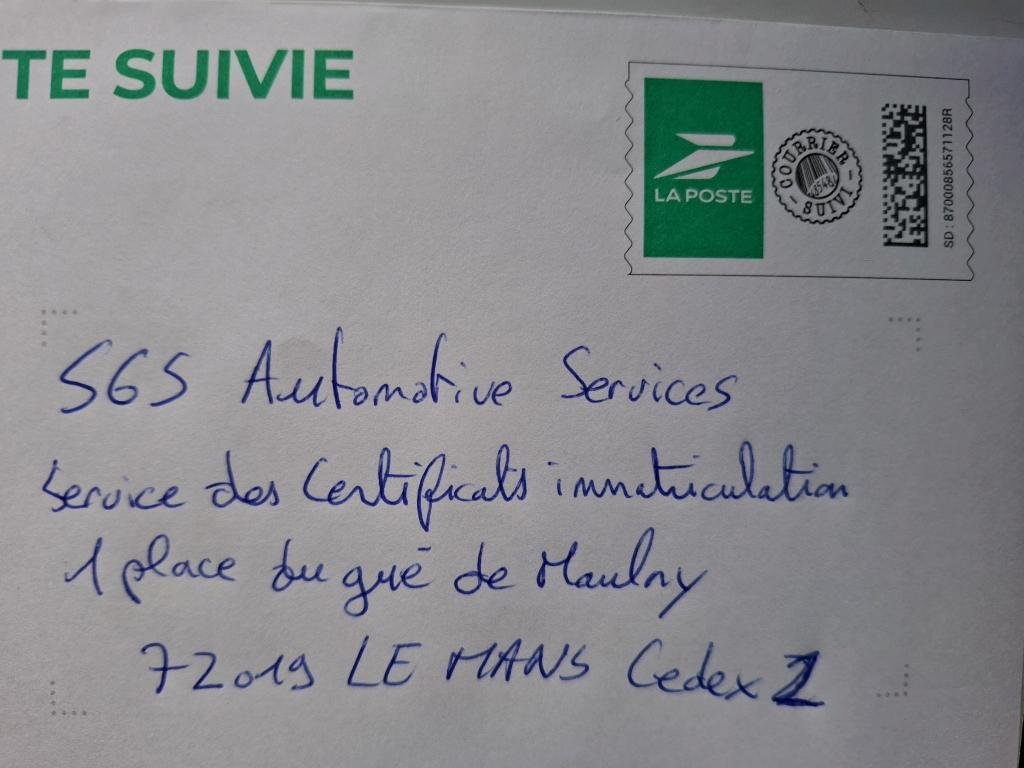 TE SUIVIE
LA POSTE
COURRIER
SUIVI
SD : 87000856571128R
SGS Automotive Services
Service des Certificats immatriculation
1 place du gué de Maulny
72019 LE MANS Cedex 2